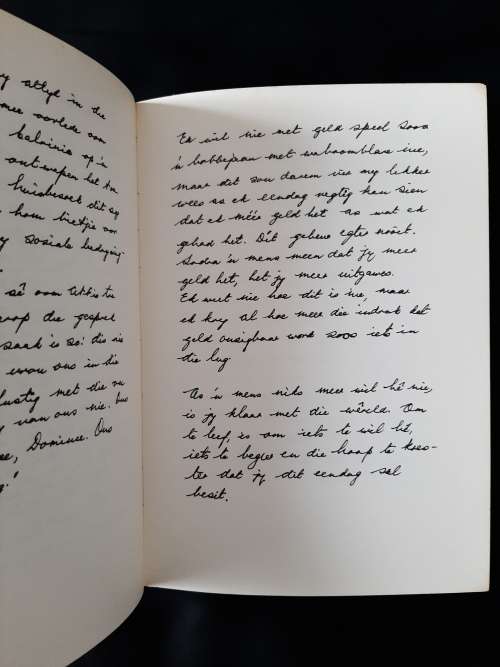 altyd in die
mee voorlede om
Calvinia op 'n
ontwerpen het hu
huisbesoek dit sy
hom bietjie oor
sosiale bediening
sê oom
op die gespel
saak is so: die is
ons in die
lustig met die ou
van ons nie. Ons
Dominee. Ons
Ek wil nie met geld speel soos
'n bobbejaan met waboomblare nie,
maar dit sou darem vir my lekker
wees as ek eendag regtig kan sien
dat ek méér geld het as wat ek
gehad het. Dít gebeur egter nooit.
Sodra 'n mens meen dat jy meer
geld het, het jy meer uitgawes.
Ek weet nie hoe dit is nie, maar
ek kry al hoe meer die indruk dat
geld onsigbaar word soos iets in
die lug.
As 'n mens niks meer wil hê nie,
is jy klaar met die wêreld. Om
te leef, is om iets te wil hê,
iets te begeer en die hoop te koes-
ter dat jy dit eendag sal
besit.